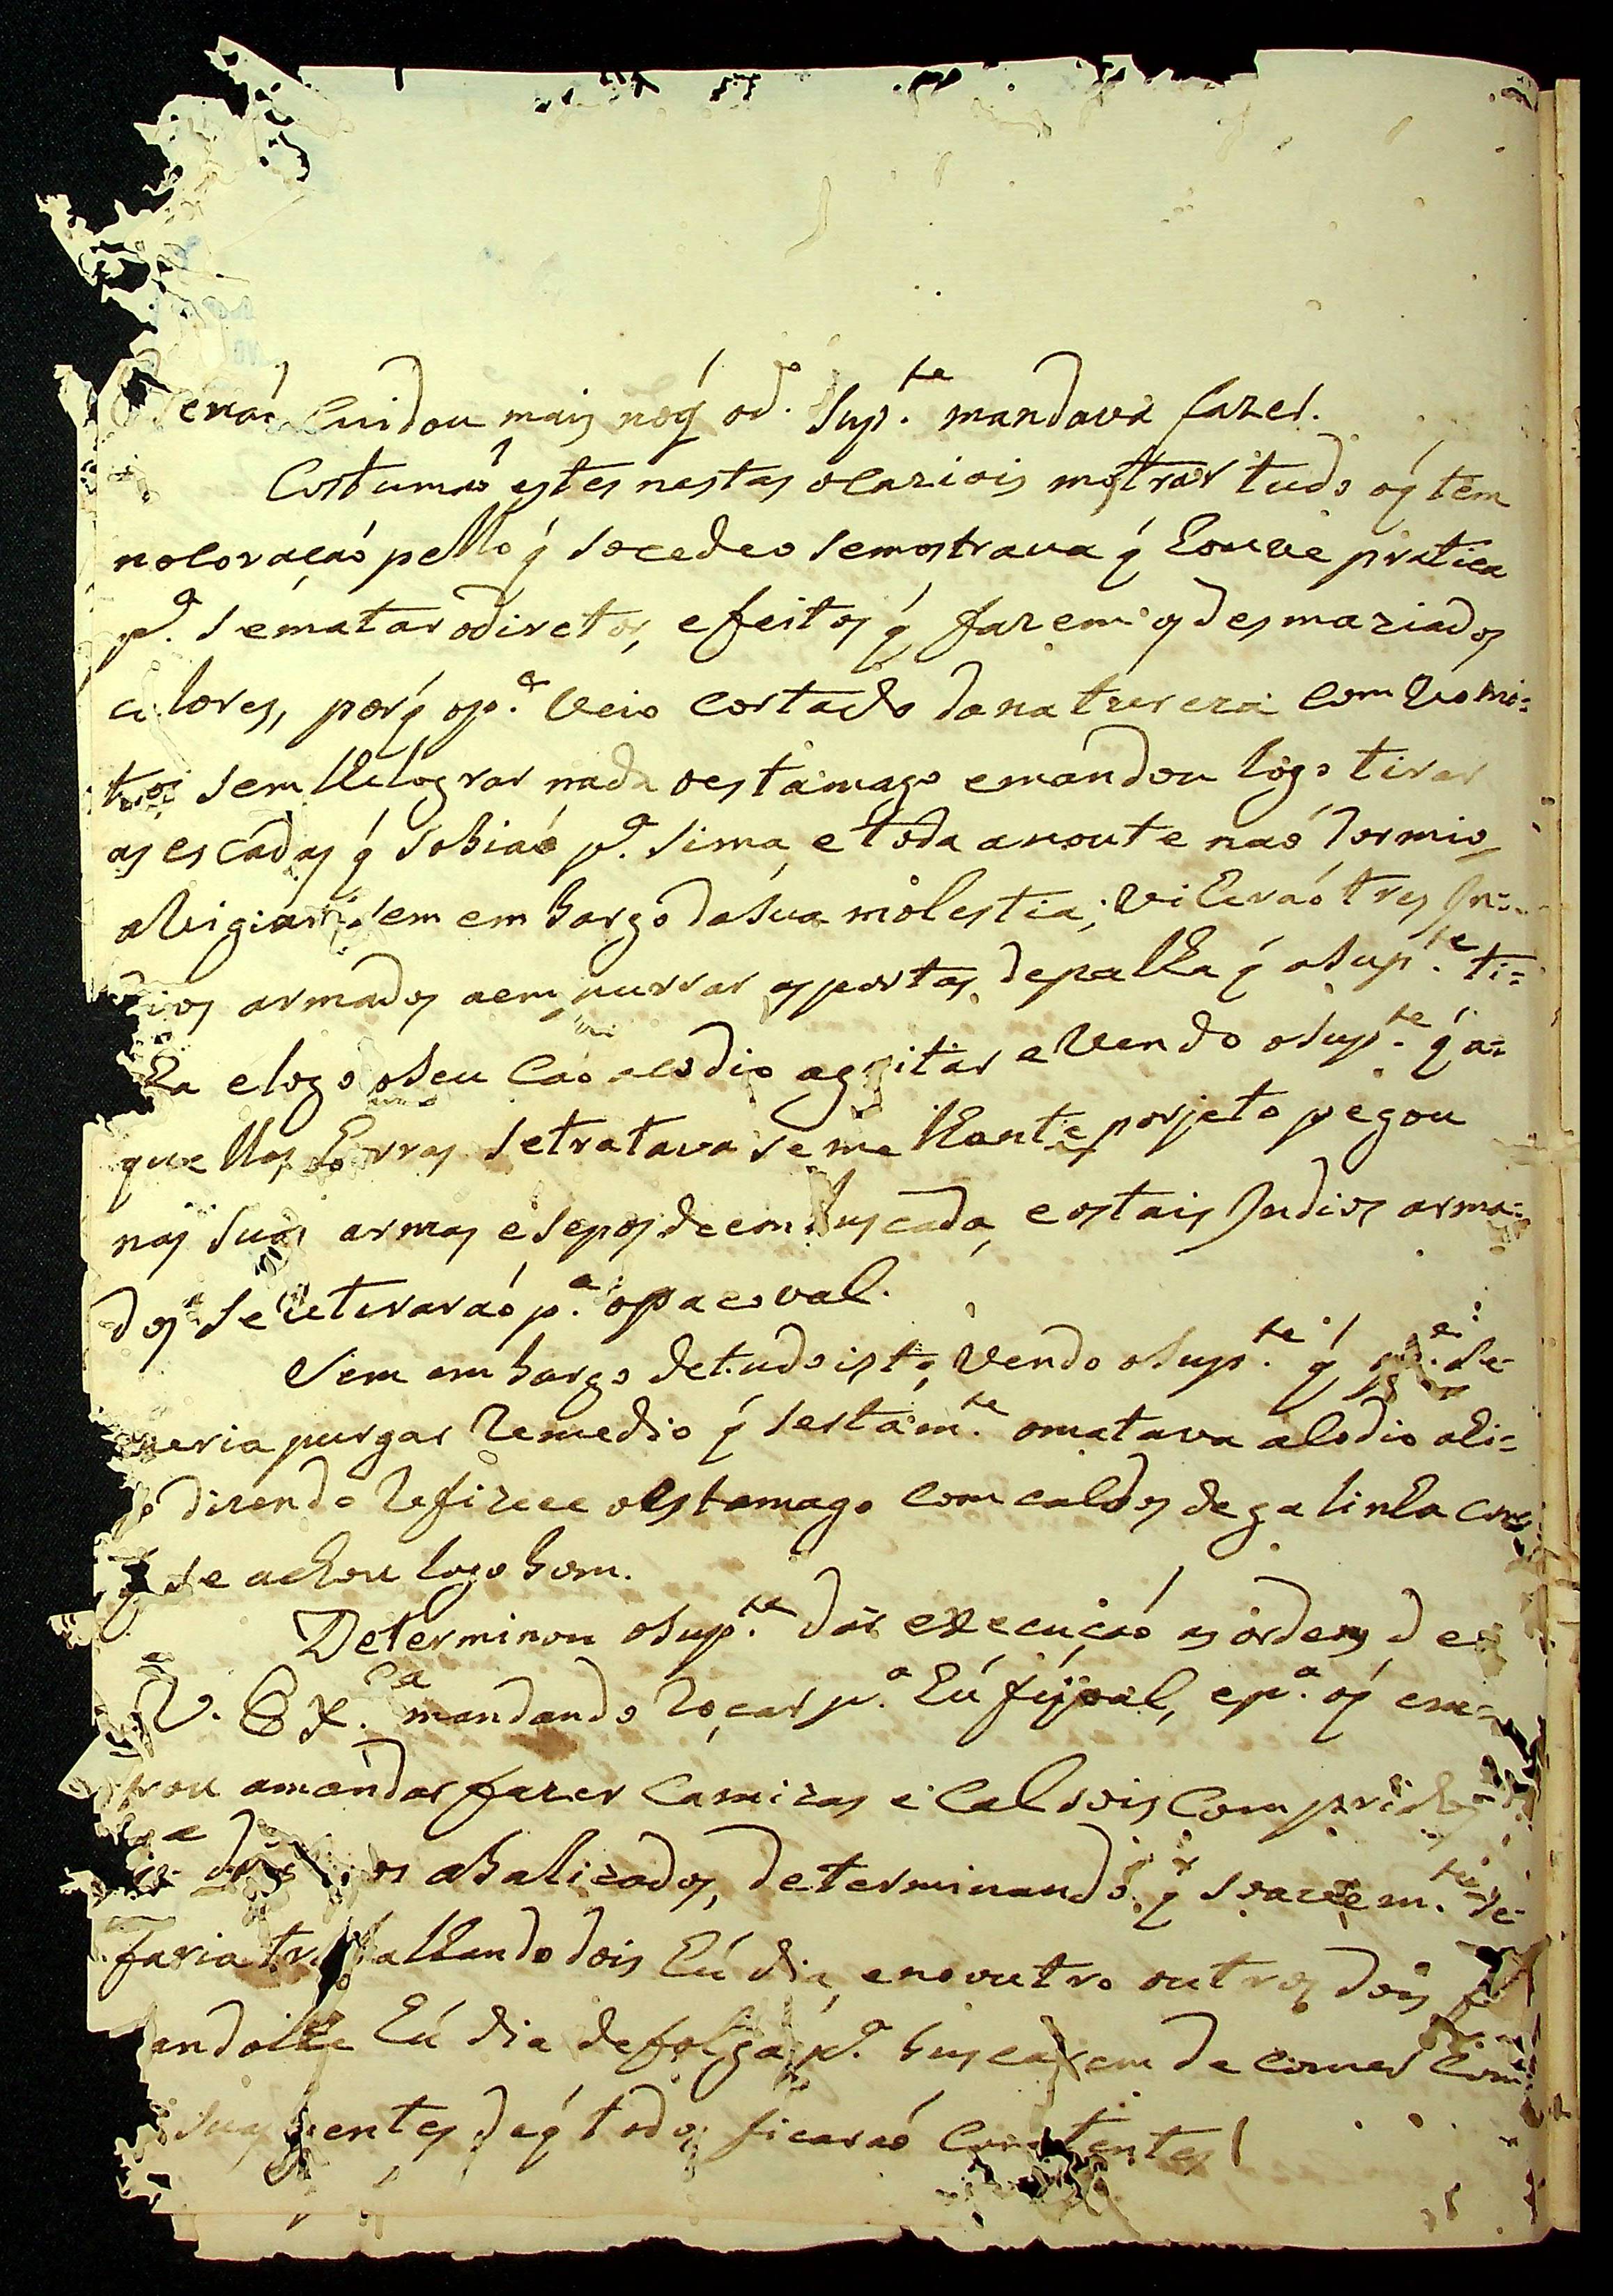 e naó Cuidou mais noq́ od.º Sup.te mandava fazer.
Costumaó estes nestas ocaziois mostrar tudo oq́ tem
nocoraçaó pello q́ socedeo semostrava q́ houve pratica
p.ª sematar odiretor, efeitos q́ fazem os desmaziados
calores, porq́ op.e veio cortado da natureza com vomi=
tos sem lhelograr nada oestamago emandou logo tirar
as escadas q́ sobiaó p.ª sima, etoda anoute naó dormio,
avigiar sem embargo dasua molestia; vieraó tres In=
dios armados aempurrar asportas depalha q́ oSup.te ti=
ha elogo oseu Caó acodio agritar evendo oSup.te q́ a=
quellas horas setratava semelhante porjeto pegou
nas suas armas esepos deembuscada, eostais Indios arma=
dos se retiraraó p.ª opacoval.
Sem embargo detudo isto, vendo oSup.te q́ se
queria purgar remedio q́ sertam.te omatava alodio
dizendo refizece oestamago comcaldos degalinha com
q́ se achou logo bom.
Determinou oSup.te dar execuçaó as ordens de
V. Ex.ca mandando roçar p.ª hú fijoal, ep.ª oq́ em=
trou amandar fazer Camizas e Calsois Compridos
os abalizados, determinando q́ suavem.te se
faria trabalhando dois hú dia, enooutro outros dois
andolhe hú dia defolga p.ª buscarem de comer com
suas gentes deq́ todos ficaraó Contentes